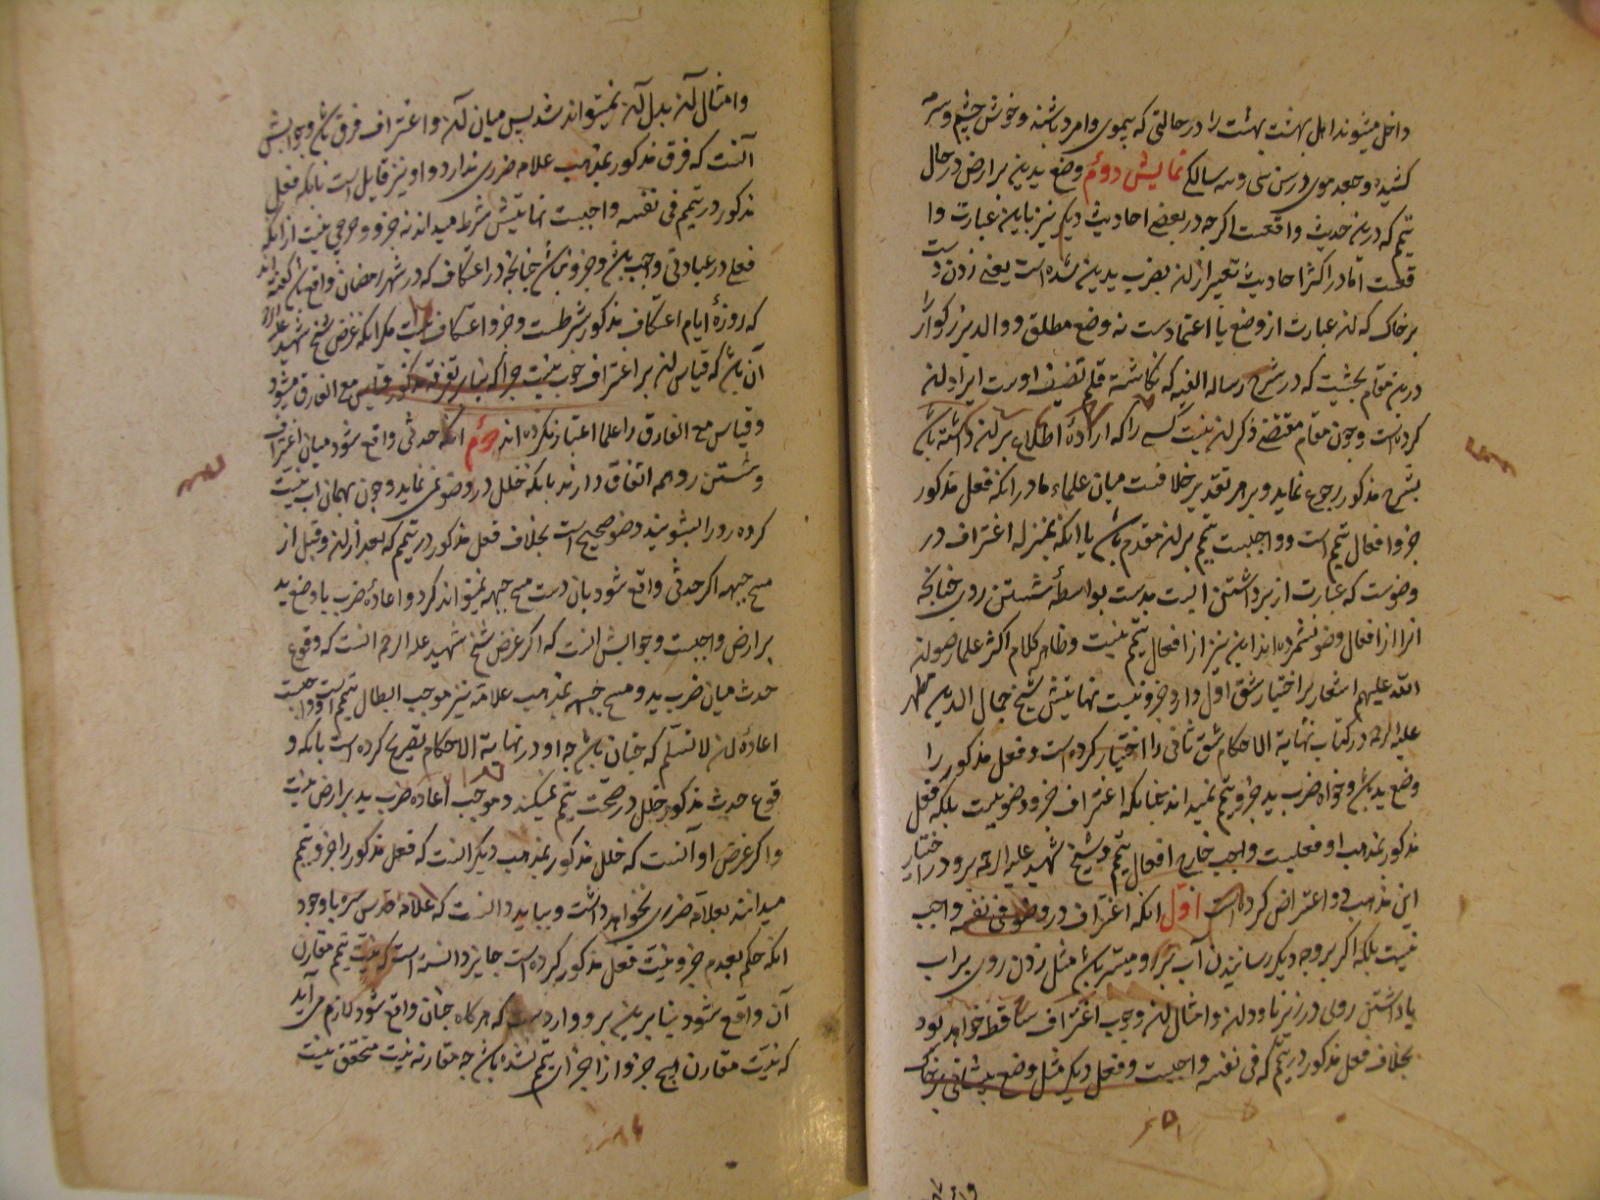 داخل میشوند اهل بهشت بهشت را در حالتی که بیموی و امرد باشند و خوش چشم و سرمه
کشیده و جعد موی در سن سی و سه سالگی نمایش دوئم وضع یدین بر ارض در حال
تیمم که درین حدیث واقعست اگرچه در بعضی احادیث دیگر نیز باین عبارت وا
قعست اما در اکثر احادیث تعبیر ازان بضرب یدین شده است یعنی زدن دست
بر خاک که ان عبارت از وضع با اعتمادست نه وضع مطلق و والد بزرگوار را
درین مقام بحثیست که در شرح رساله الفیه که نگاشته قلم تصنیف اوست ایراد ان
کرده است و چون مقام مقتضی ذکر ان نیست کسی را که اراده اطلاع بر ان داشته باشد
بشرح مذکور رجوع نماید و بر هر تقدیر خلافست میان علماء ما در انکه فعل مذکور
جزو افعال تیمم است و واجبست نیت تیمم بر ان مقدم باشد یا انکه بمنزله اغتراف در
وضوست که عبارت از برداشتن ابست بدست بواسطه شستن روی چنانچه
انرا از افعال وضو نشمرده اند این نیز از افعال تیمم نیست و ظاهر کلام اکثر علما رضوان
الله علیهم اشعار بر اختیار شق اول دارد نهایتش شیخ جمال الدین مطهر
علیه الرحمه در کتاب نهایة الاحکام شق ثانی را اختیار کرده است و فعل مذکور را
وضع ید باشد و خواه ضرب ید جزو تیمم نمیداند چنانکه اغتراف جزو وضو نیست بلکه فعل
مذکور بمذهب او فعلیست واجب خارج افعال تیمم و شیخ شهید علیه الرحمه برو در اختیار
این مذهب دو اعتراض کرده است اول انکه اغتراف در وضو فی نفسه واجب
نیست بلکه اگر بر وجه دیگر رسانیدن آب برو میسر باشد مثل زدن روی بر اب
یا داشتن روی در زیر ناودان و امثال ان وجوب اغتراف ساقط خواهد بود
بخلاف فعل مذکور در تیمم که فی نفسه واجبست و فعل دیگر مثل وضع پیشانی بر خاک
و امثال آن بدل آن نمیتواند شد پس میان آن و اغتراف فرق باشد و جوابش
آنست که فرق مذکور بمذهب علامه ضرری ندارد و او نیز قایل است بانکه فعل
مذکور در تیمم فی نفسه واجبست نهایتش شرط میداند نه جزو و حرجی نیست از انکه
فعلی در عبادتی واجب باشد و جزو نباشد چنانچه در اعتکاف که در شهر رمضان واقع باشد گفته اند
که روزه ایام اعتکاف مذکور شرطست و جزو اعتکاف نیست مگر انکه غرض شیخ شهید علیه الرحمه
آن باشد که قیاس ان بر اغتراف خوب نیست چرا که بنابر تفرقه مذکور قیاس مع الفارق میشود
و قیاس مع الفارق را علما اعتبار نکرده اند دوئم انکه حدثی واقع شود میان اغتراف
و شستن رو همه اتفاق دارند بانکه خلل در وضو نمی نماید و چون بهمان اب نیت
کرده رو را بشویند وضو صحیح است بخلاف فعل مذکور در تیمم که بعد ازان و قبل از
مسح جبهه اگر حدثی واقع شود بان دست مسح جبهه نمیتواند کرد و اعاده ضرب یا وضع ید
بر ارض واجبست و جوابش انست که اگر غرض شیخ شهید علیه الرحمه انست که وقوع
حدث میان ضرب ید و مسح جبهه بمذهب علامه نیز موجب ابطال تیمم است و واجبست
اعاده ان لا نسلم که چنان باشد چه او در نهایة الاحکام تصریح کرده است بانکه و
قوع حدث مذکور خلل در صحت تیمم نمیکند و موجب اعاده ضرب ید بر ارض نیست
و اگر غرض او آنست که خلل مذکور بمذهب دیگر انست که فعل مذکور را جزو تیمم
میدانند بعلامه ضرری نخواهد داشت و بباید دانست که علامه قدس سره با وجود
انکه حکم بعدم جزویت فعل مذکور کرده است جایز دانسته است که نیت تیمم مقارن
آن واقع شود بنابرین برو واردست که هرگاه چنان واقع شود لازم می آید
که نیت مقارن هیچ جزو از اجزای تیمم نشده باشد چه مقارنه نیت متحقق نیست